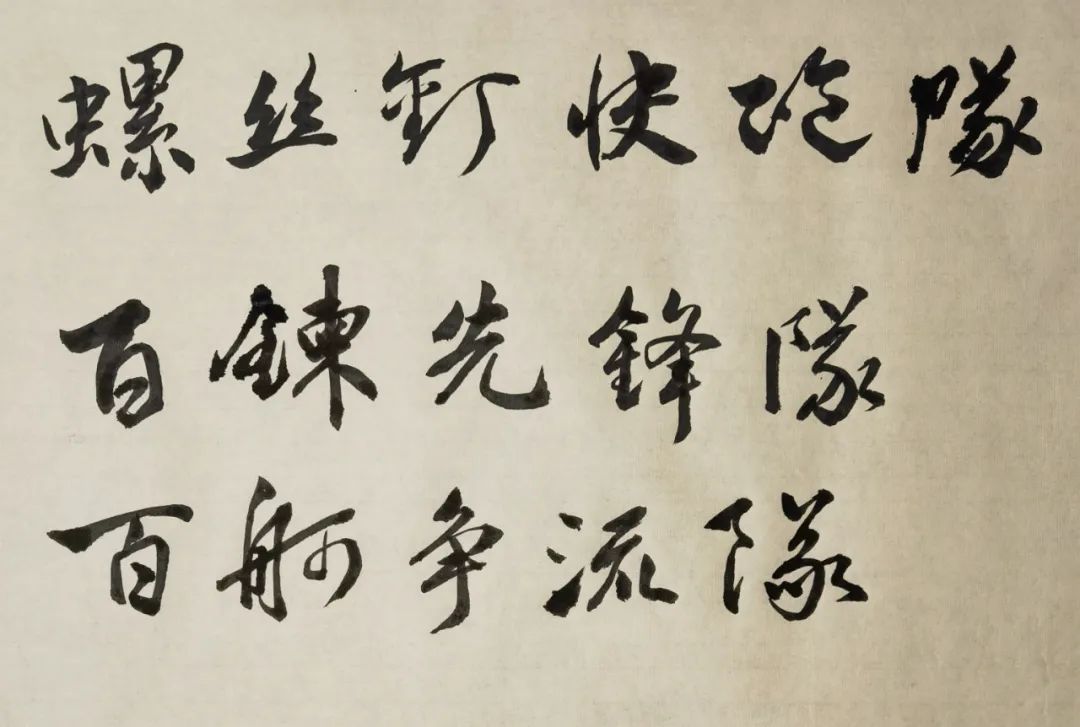 螺丝釘快跑隊
百鍊先鋒隊
百舸争流隊